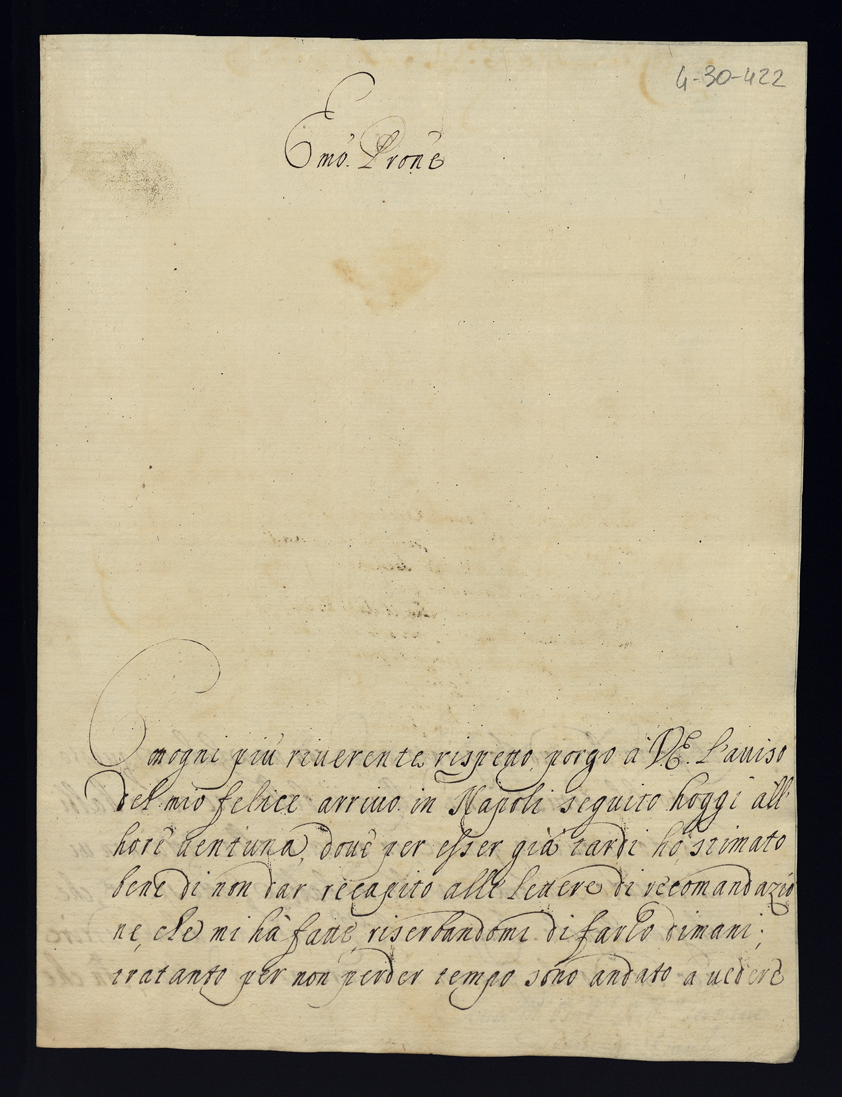 4-30-422
Emo. Prone
Con ogni più riverente rispetto porgo à V.E. l'auiso
del mio felice arriuo in Napoli seguito hoggi all'
hore uentuna, doue per esser già tardi hò stimato
bene di non dar recapito alle lettere di recomandazio
ne, che mi hà fatte, riserbandomi di farlo dimani;
tratanto per non perder tempo sono andato a uedere